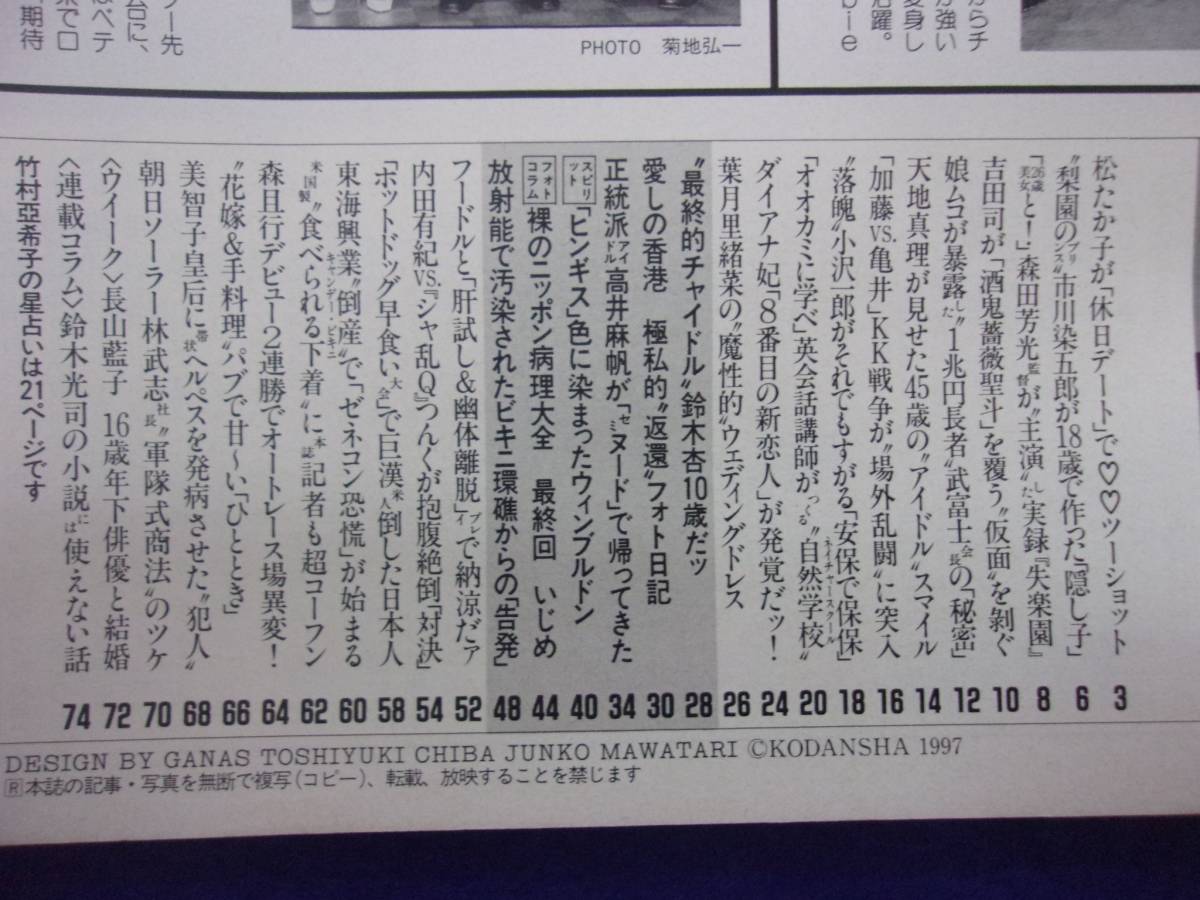 ソー先
台に、
はペテ
来で口
期待
PHOTO 菊地弘一
からチ
変身し
が強い
活躍。
bie
松たか子が「休日デート」で♡♡ツーショット 3
〝梨園のプリンス〟市川染五郎が18歳で作った「隠し子」 6
「26歳美女と!」森田芳光監督が〝主演〟した実録『失楽園』 8
吉田司が「酒鬼薔薇聖斗」を覆う〝仮面〟を剝ぐ 10
娘ムコが暴露した〝1兆円長者〟武富士会長の「秘密」 12
天地真理が見せた45歳の〝アイドル〟スマイル 14
「加藤VS.亀井」KK戦争が〝場外乱闘〟に突入 16
〝落魄〟小沢一郎がそれでもすがる「安保で保保」 18
「オオカミに学べ」英会話講師がつくる〝自然学校〟ネイチャースクール 20
ダイアナ妃「8番目の新恋人」が発覚だッ! 24
葉月里緒菜の〝魔性的〟ウェディングドレス 26
〝最終的チャイドル〟鈴木杏10歳だッ 28
愛しの香港 極私的〝返還〟フォト日記 30
正統派アイドル高井麻帆が「セミヌード」で帰ってきた 34
スピリット 「ヒンギス」色に染まったウィンブルドン 40
フォトコラム 裸のニッポン病理大全 最終回 いじめ 44
放射能で汚染されたビキニ環礁からの「告発」 48
フードルと「肝試し&幽体離脱」プレイで納涼だァ 52
内田有紀VS.『シャ乱Q』つんくが抱腹絶倒「対決」 54
「ホットドッグ早食い大会」で巨漢米人倒した日本人 58
東海興業〝倒産〟で「ゼネコン恐慌」が始まる 60
米国製〝食べられる下着〟キャンデー・ビキニに本誌記者も超コーフン 62
森且行デビュー2連勝でオートレース場異変! 64
〝花嫁&手料理〟パブで甘〜い「ひととき」 66
美智子皇后に帯状ヘルペスを発病させた〝犯人〟 68
朝日ソーラー林武志社長〝軍隊式商法〟のツケ 70
〈ウイーク〉長山藍子 16歳年下俳優と結婚 72
〈連載コラム〉鈴木光司の小説には使えない話 74
竹村亞希子の星占いは21ページです
DESIGN BY GANAS TOSHIYUKI CHIBA JUNKO MAWATARI ©KODANSHA 1997
R本誌の記事・写真を無断で複写(コピー)、転載、放映することを禁じます